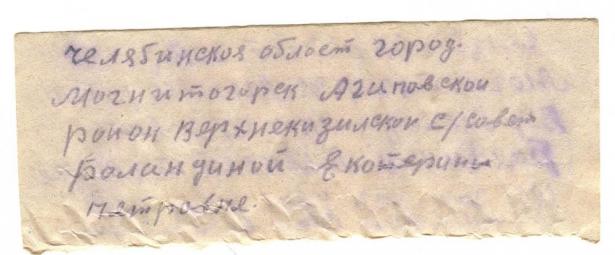 челябинская област город.
Могнитогорск Агиповской
район Верхнекизилской с/совет
Боландиной Екотерины
петровне.